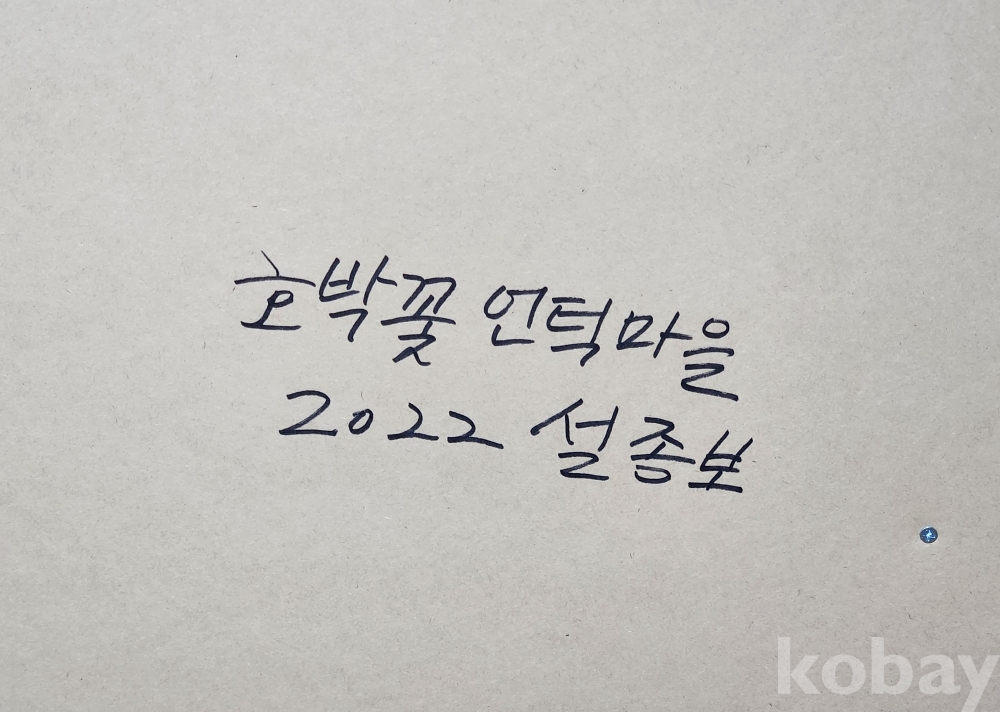 호박꽃 언덕마을
2022 설종보
kobay